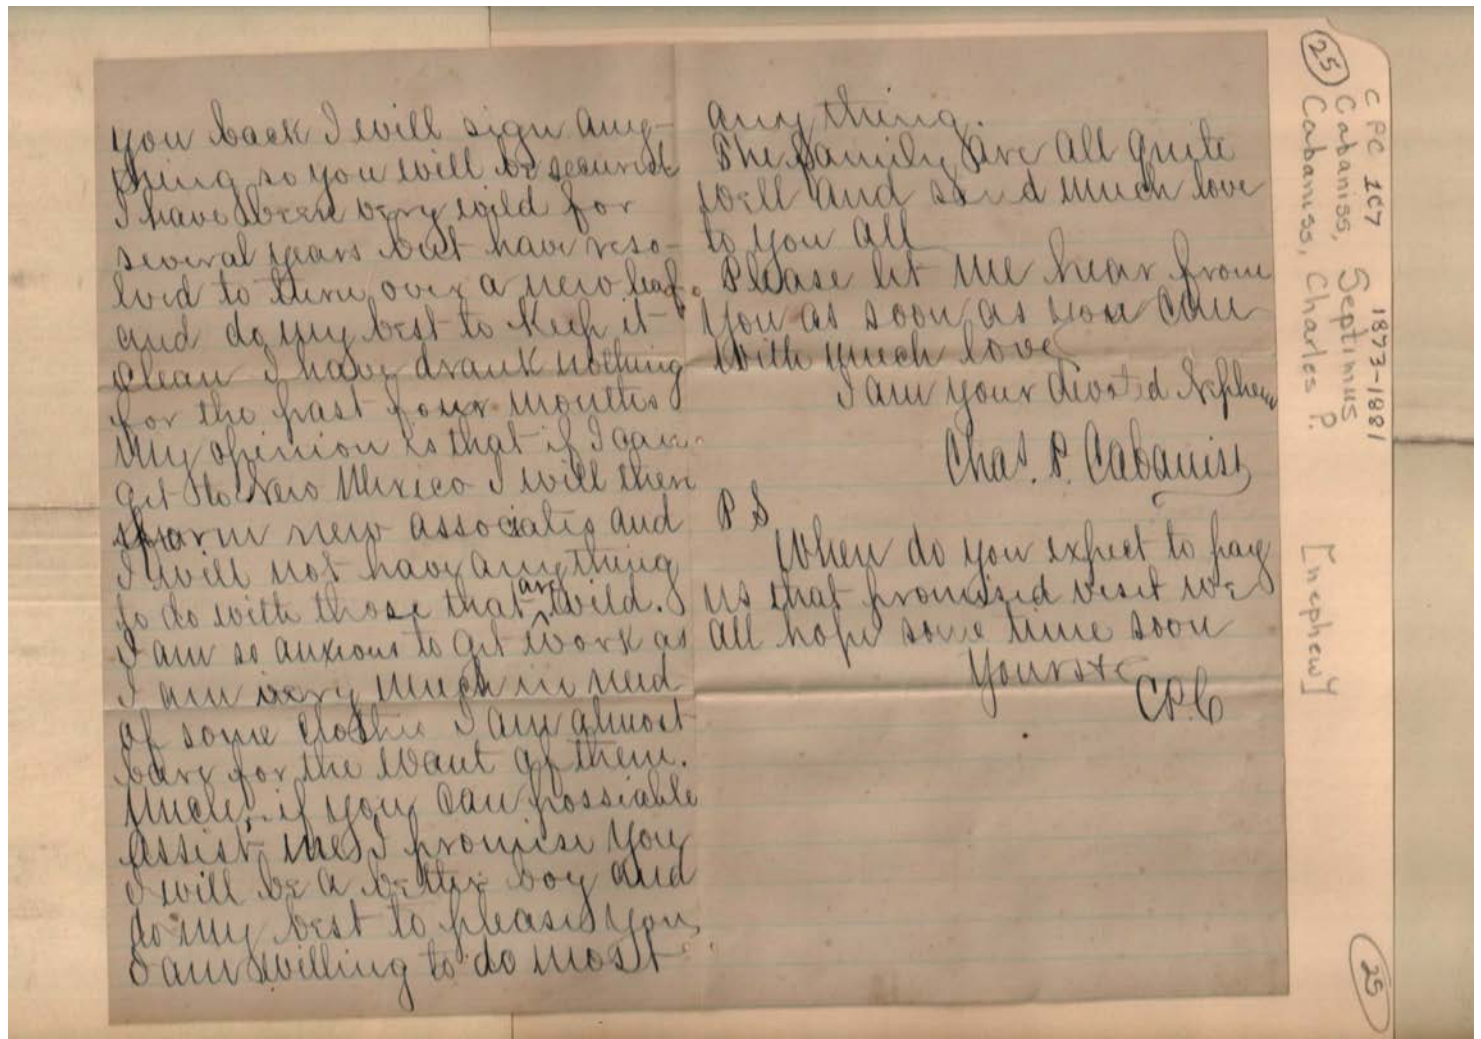 you back I will sign any-
thing so you will be secured
I have been very wild for
several years but have reso-
lved to turn over a new leaf.
and do my best to keep it
clean I have drank nothing
for the past four months
My opinion is that if I can
get to New Mexico I will then
form new associates and
I will not have anything
to do with those that are wild.
I am so anxious to get work as
I am very much in need
of some clothes I am almost
bare for the want of them.
Uncle, if you can possiable
assist me I promise you
I will be a better boy and
do my best to please you,
I am willing to do most
any thing.
The family are all quite
well and send much love
to you all
Please let me hear from
you as soon as you can
With much love
I am your devoted Nephew
Chas. P. Cabaniss
P S
When do you expect to pay
us that promised visit we
all hope some time soon
Yours &c
C.P.C
CPC 1C7 1873-1881
Cabaniss, Septimus
25 Cabaniss, Charles P. [nephew]
25